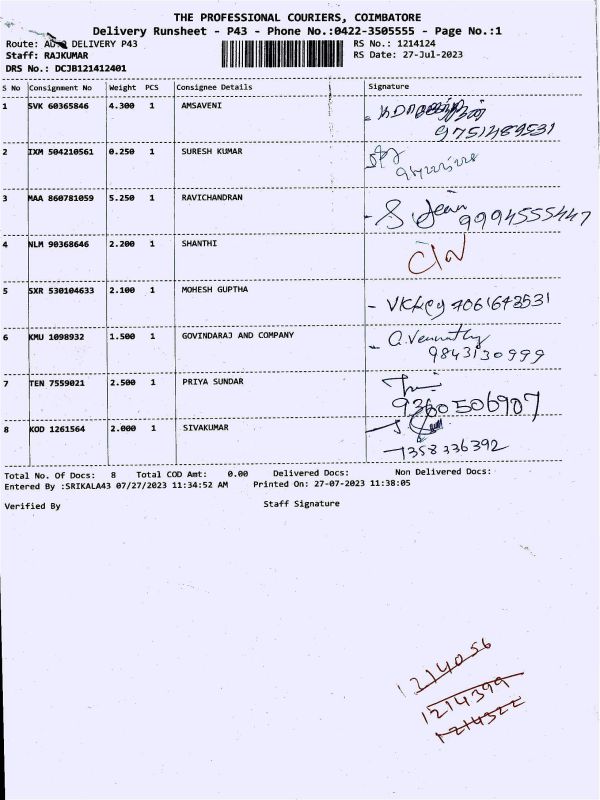 THE PROFESSIONAL COURIERS, COIMBATORE
Delivery Runsheet - P43 - Phone No.:0422-3505555 - Page No.:1
Route: DELIVERY P43 RS No.: 1214124
Staff: RAJKUMAR RS Date: 27-Jul-2023
DRS No.: DCJB121412401
S No Consignment No Weight PCS Consignee Details Signature
1 SVK 60365846 4.300 1 AMSAVENI
9751489531
2 IXM 504210561 0.250 1 SURESH KUMAR
3 MAA 860781059 5.250 1 RAVICHANDRAN S. Jein
9994555447
4 NLM 90368646 2.200 1 SHANTHI
5 SXR 530104633 2.100 1 MOHESH GUPTHA
6 KMU 1098932 1.500 1 GOVINDARAJ AND COMPANY
9843130999
7 TEN 7559021 2.500 1 PRIYA SUNDAR
9360506907
8 KOD 1261564 2.000 1 SIVAKUMAR
7358336392
Total No. Of Docs: 8 Total COD Amt: 0.00 Delivered Docs: Non Delivered Docs:
Entered By :SRIKALA43 07/27/2023 11:34:52 AM Printed On: 27-07-2023 11:38:05
Verified By Staff Signature
1214056
1214399
1214322